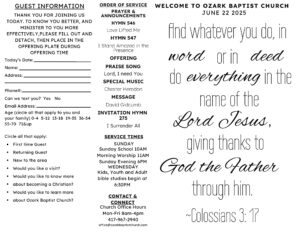 GUEST INFORMATION
THANK YOU FOR JOINING US
TODAY. TO KNOW YOU BETTER, AND
MINISTER TO YOU MORE
EFFECTIVELY, PLEASE FILL OUT AND
DETACH, THEN PLACE IN THE
OFFERING PLATE DURING
OFFERING TIME
Today's Date:
Name:
Address:
Phone:
Can we text you? Yes No
Email Address:
Age (circle all that apply to you and
your family) 0-4 5-12 13-18 19-35 36-54
55-70 71&up
Circle all that apply:
First Time Guest
Returning Guest
New to the area
Would you like a visit?
Would you like to know more
about becoming a Christian?
Would you like to learn more
about Ozark Baptist Church?
ORDER OF SERVICE
PRAYER &
ANNOUNCEMENTS
HYMN 546
Love Lifted Me
HYMN 547
I Stand Amazed in the
Presence
OFFERING
PRAISE SONG
Lord, I need You
SPECIAL MUSIC
Chester Herndon
MESSAGE
David Gidcumb
INVITATION HYMN
275
I Surrender All
SERVICE TIMES
SUNDAY
Sunday School 10AM
Morning Worship 11AM
Sunday Evening 6PM
WEDNESDAY
Kids, Youth and Adult
bible studies begin at
6:30PM
CONTACT &
CONNECT
Church Office Hours
Mon-Fri 8am-4pm
417-967-2940
office@ozarkbaptistchurch.com
WELCOME TO OZARK BAPTIST CHURCH
JUNE 22 2025
And whatever you do, in
word or in deed
do everything in the
name of the
Lord Jesus,
giving thanks to
God the Father
through him.
~Colossians 3: 17